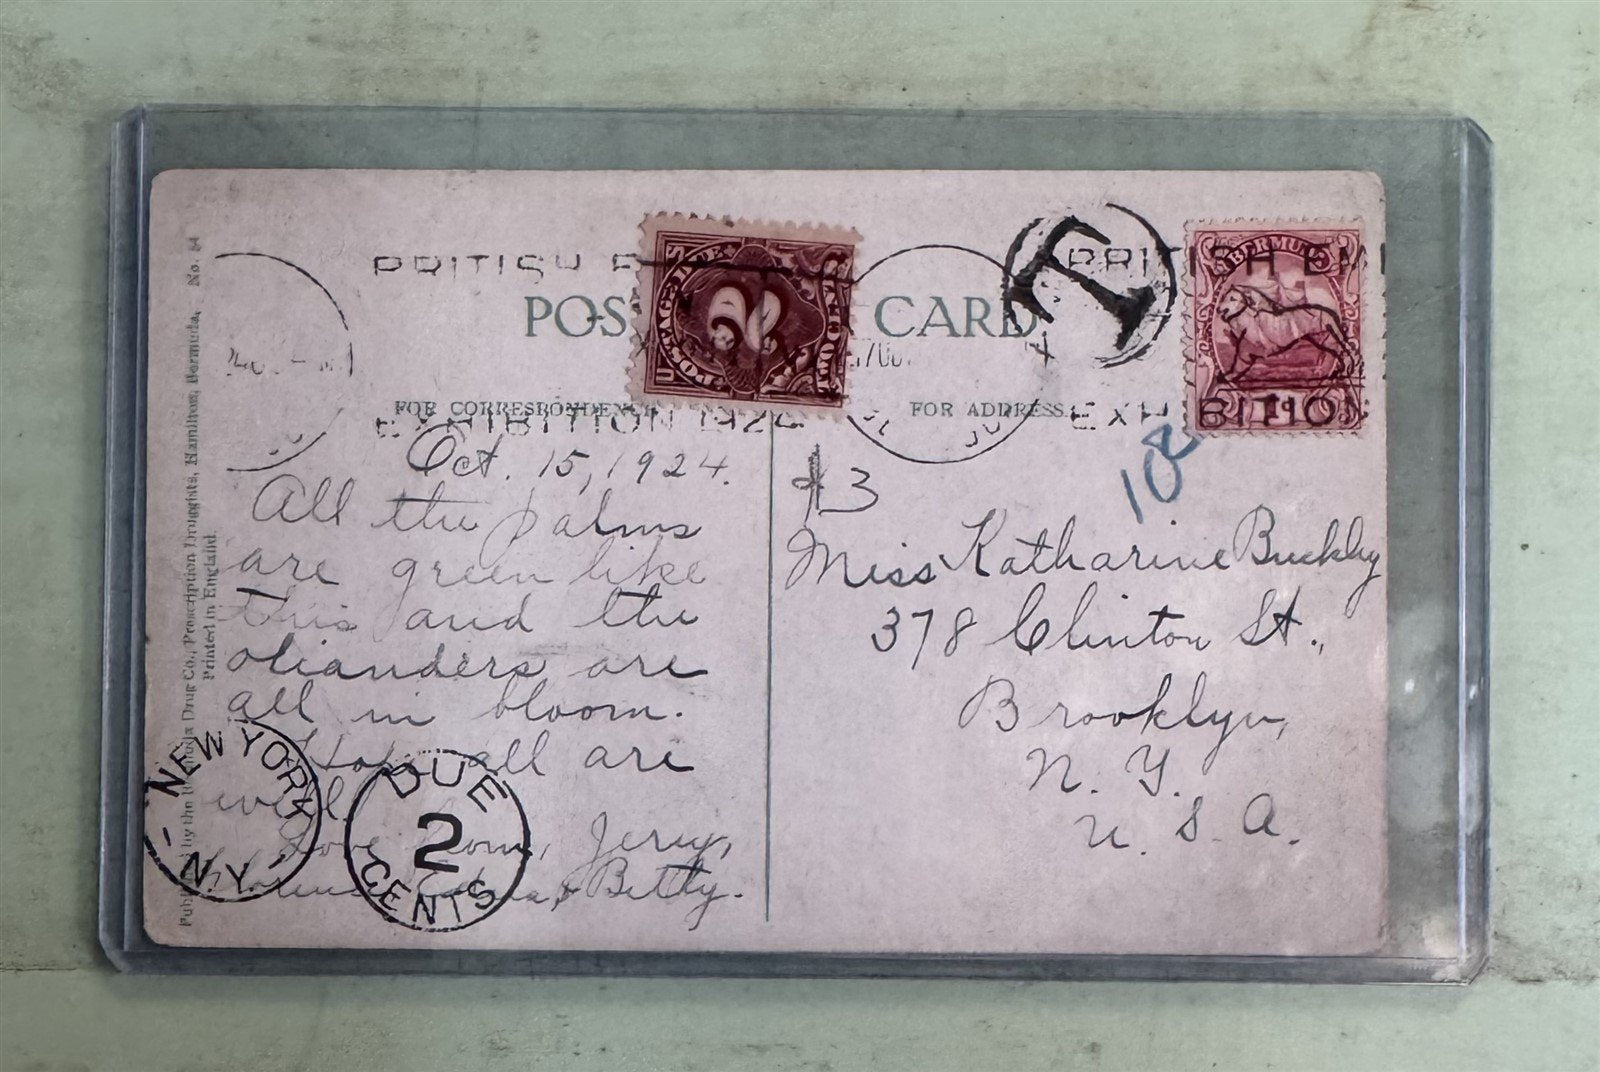 POST CARD
FOR CORRESPONDENCE
FOR ADDRESS
Published by the Bermuda Drug Co., Prescription Druggists, Hamilton, Bermuda. No. 54
Printed in England.
BRITISH E
EXHIBITION 1924
BRITISH EM
EXHIBITION
T
POSTAGE DUE
UNITED STATES
2
TWO CENTS
BERMUDA
108
Oct. 15, 1924.
All the palms
are green like
this and the
olianders are
all in bloom.
Hope all are
well.
Love from, Jerry,
& Betty.
#3
Miss Katharine Buckley
378 Clinton St.,
Brooklyn,
N. Y.
U. S. A.
NEW YORK
N.Y.
DUE
2
CENTS